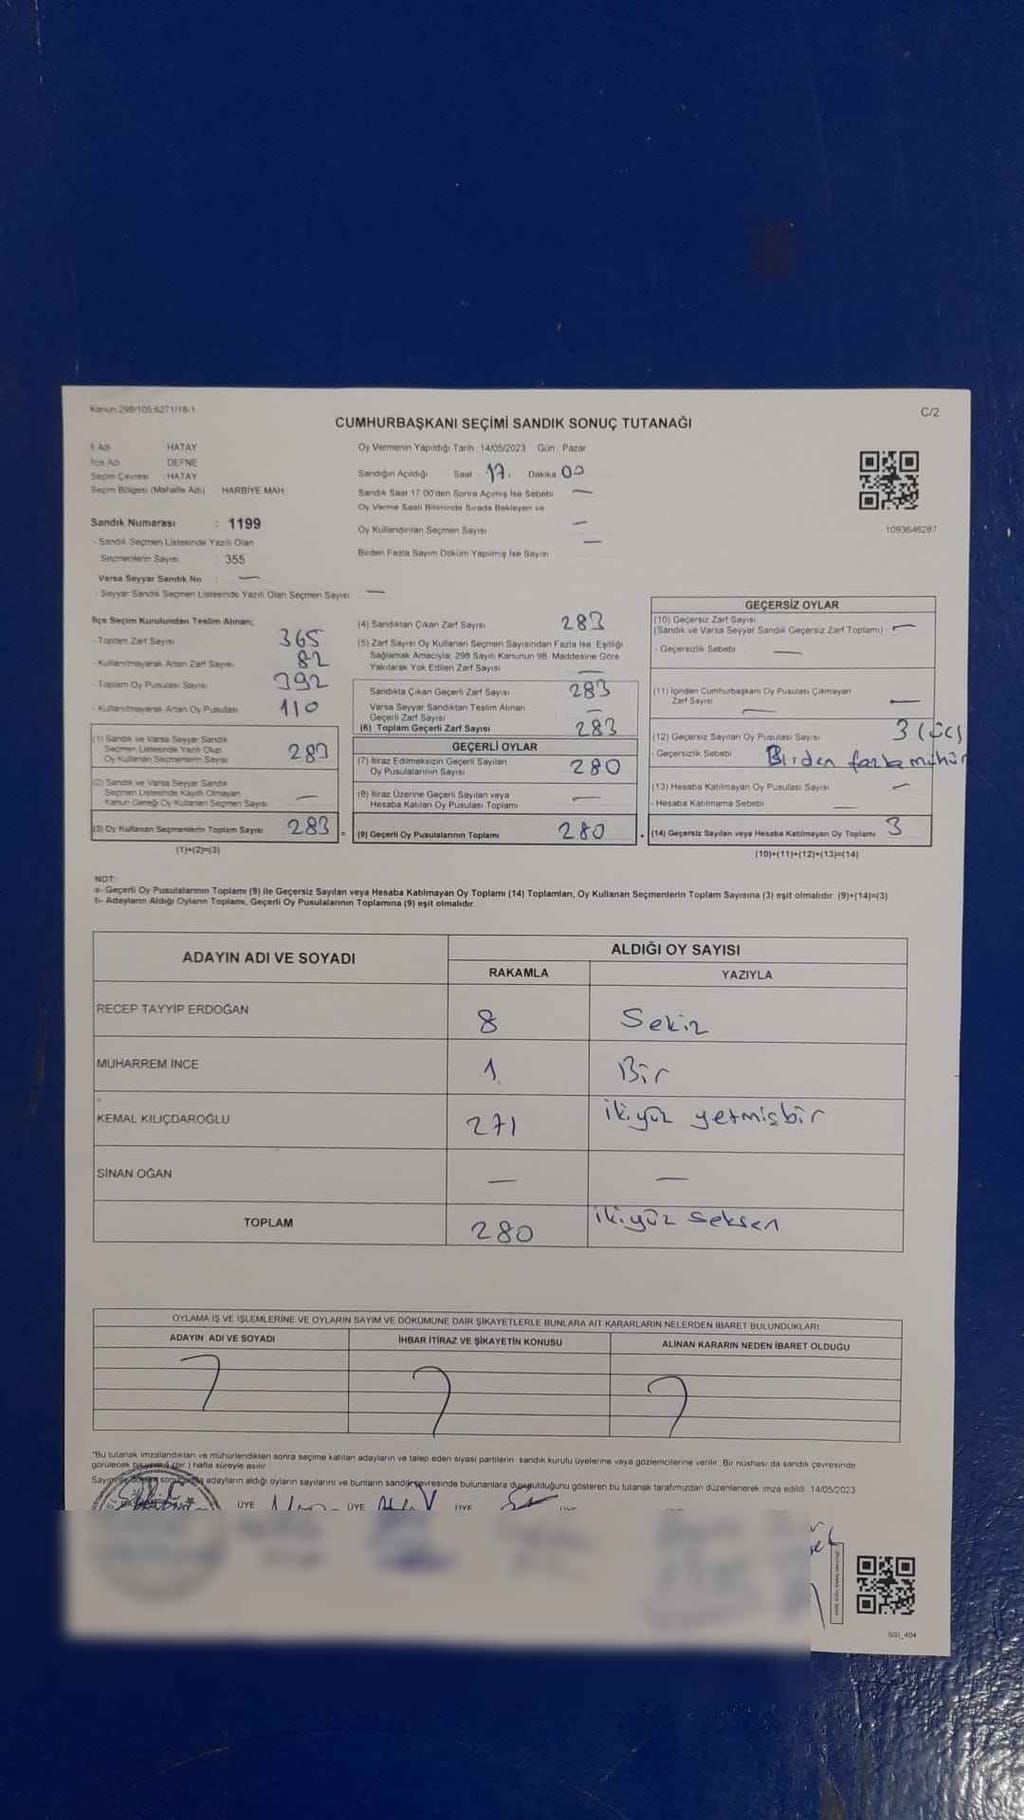 Kanun 298/105:6271/18-1
C/2
CUMHURBAŞKANI SEÇİMİ SANDIK SONUÇ TUTANAĞI
İl Adı HATAY
İlçe Adı DEFNE
Seçim Çevresi : HATAY
Seçim Bölgesi (Mahalle Adı) HARBİYE MAH
Sandık Numarası : 1199
- Sandık Seçmen Listesinde Yazılı Olan
Seçmenlerin Sayısı : 355
Varsa Seyyar Sandık No : —
- Seyyar Sandık Seçmen Listesinde Yazılı Olan Seçmen Sayısı —
Oy Vermenin Yapıldığı Tarih : 14/05/2023 Gün : Pazar
Sandığın Açıldığı Saat : 17. Dakika 00
Sandık Saat 17.00'den Sonra Açılmış İse Sebebi —
Oy Verme Saati Bitiminde Sırada Bekleyen ve
Oy Kullandırılan Seçmen Sayısı —
Birden Fazla Sayım Döküm Yapılmış İse Sayısı —
1093646287
İlçe Seçim Kurulundan Teslim Alınan;
- Toplam Zarf Sayısı 365
- Kullanılmayarak Artan Zarf Sayısı 82
- Toplam Oy Pusulası Sayısı 392
- Kullanılmayarak Artan Oy Pusulası 110
(1) Sandık ve Varsa Seyyar Sandık
Seçmen Listesinde Yazılı Olup
Oy Kullanan Seçmenlerin Sayısı 283
(2) Sandık ve Varsa Seyyar Sandık
Seçmen Listesinde Kayıtlı Olmayan
Kanun Gereği Oy Kullanan Seçmen Sayısı —
(3) Oy Kullanan Seçmenlerin Toplam Sayısı 283 =
(1)+(2)=(3)
(4) Sandıktan Çıkan Zarf Sayısı 283
(5) Zarf Sayısı Oy Kullanan Seçmen Sayısından Fazla İse, Eşitliği
Sağlamak Amacıyla, 298 Sayılı Kanunun 98. Maddesine Göre
Yakılarak Yok Edilen Zarf Sayısı —
Sandıkta Çıkan Geçerli Zarf Sayısı 283
Varsa Seyyar Sandıktan Teslim Alınan
Geçerli Zarf Sayısı —
(6) Toplam Geçerli Zarf Sayısı 283
GEÇERLİ OYLAR
(7) İtiraz Edilmeksizin Geçerli Sayılan
Oy Pusulalarının Sayısı 280
(8) İtiraz Üzerine Geçerli Sayılan veya
Hesaba Katılan Oy Pusulası Toplamı —
(9) Geçerli Oy Pusulalarının Toplamı 280
GEÇERSİZ OYLAR
(10) Geçersiz Zarf Sayısı
(Sandık ve Varsa Seyyar Sandık Geçersiz Zarf Toplamı) —
- Geçersizlik Sebebi —
(11) İçinden Cumhurbaşkanı Oy Pusulası Çıkmayan
Zarf Sayısı —
(12) Geçersiz Sayılan Oy Pusulası Sayısı 3 (üç)
- Geçersizlik Sebebi Birden fazla mühür
(13) Hesaba Katılmayan Oy Pusulası Sayısı —
- Hesaba Katılmama Sebebi —
(14) Geçersiz Sayılan veya Hesaba Katılmayan Oy Toplamı 3
(10)+(11)+(12)+(13)=(14)
NOT:
a- Geçerli Oy Pusulalarının Toplamı (9) ile Geçersiz Sayılan veya Hesaba Katılmayan Oy Toplamı (14) Toplamları, Oy Kullanan Seçmenlerin Toplam Sayısına (3) eşit olmalıdır. (9)+(14)=(3)
b- Adayların Aldığı Oyların Toplamı, Geçerli Oy Pusulalarının Toplamına (9) eşit olmalıdır.
ADAYIN ADI VE SOYADI ALDIĞI OY SAYISI
RAKAMLA YAZIYLA
RECEP TAYYİP ERDOĞAN 8 Sekiz
MUHARREM İNCE 1 Bir
KEMAL KILIÇDAROĞLU 271 ikiyüz yetmişbir
SİNAN OĞAN — —
TOPLAM 280 ikiyüz seksen
OYLAMA İŞ VE İŞLEMLERİNE VE OYLARIN SAYIM VE DÖKÜMÜNE DAİR ŞİKAYETLERLE BUNLARA AİT KARARLARIN NELERDEN İBARET BULUNDUKLARI
ADAYIN ADI VE SOYADI İHBAR İTİRAZ VE ŞİKAYETİN KONUSU ALINAN KARARIN NEDEN İBARET OLDUĞU
*Bu tutanak imzalandıktan ve mühürlendikten sonra seçime katılan adayların ve talep eden siyasi partilerin sandık kurulu üyelerine veya gözlemcilerine verilir. Bir nüshası da sandık çevresinde
görülecek bir yere 1 (bir) hafta süreyle asılır.
adayların aldığı oyların sayılarını ve bunların sandık çevresinde bulunanlara duyurulduğunu gösteren bu tutanak tarafımızdan düzenlenerek imza edildi. 14/05/2023
ÜYE ÜYE ÜYE
SSI_404